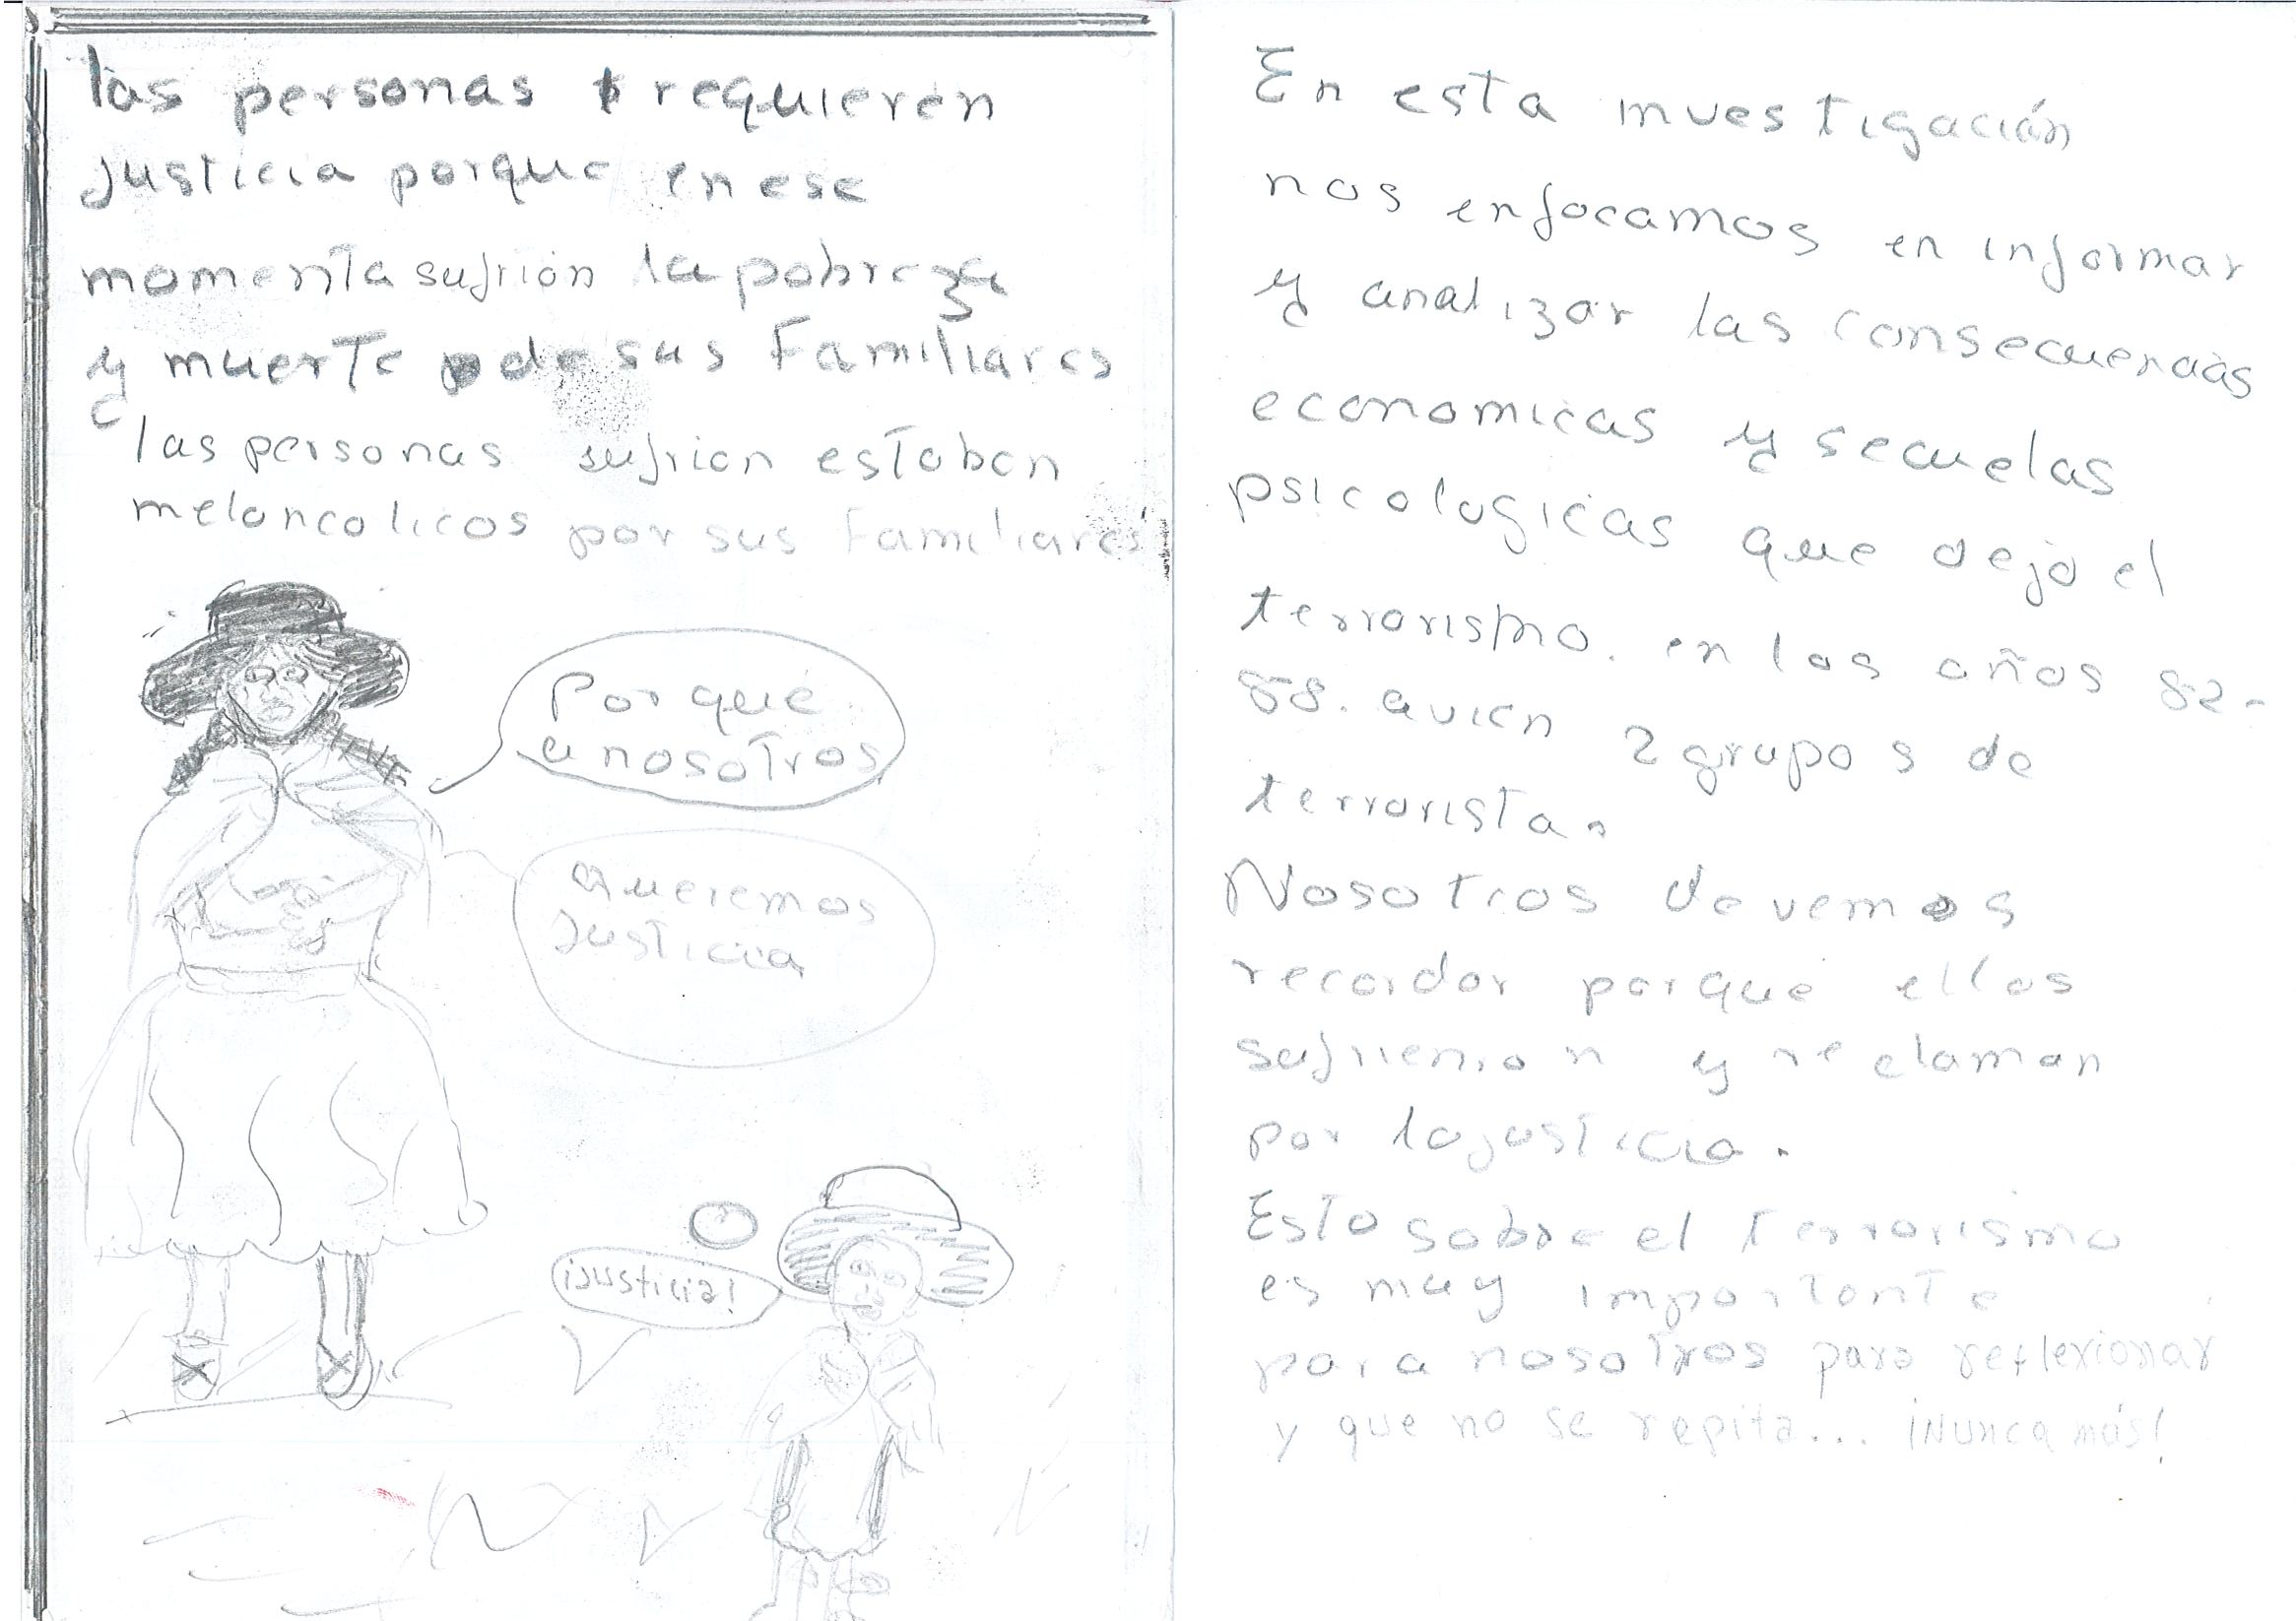 las personas requieren
Justicia porque en ese
momenta sufrion la pobreza
y muerte de sus Familiares
las personas sufrion estaban
meloncolicos por sus Familiares
Por que
a nosotros
queremos
Justicia
¡Justicia!
En esta investigación
nos enfocamos en informar
y analizar las consecuencias
economicas y secuelas
psicologicas que dejo el
terrorismo. en los años 82-
88. avien 2 grupos de
terrorista.
Nosotros devemos
recordar porque ellos
sufrieron y reclaman
por la justicia.
Esto sobre el terrorismo
es muy importante
para nosotros para reflexionar
y que no se repita... ¡Nunca más!